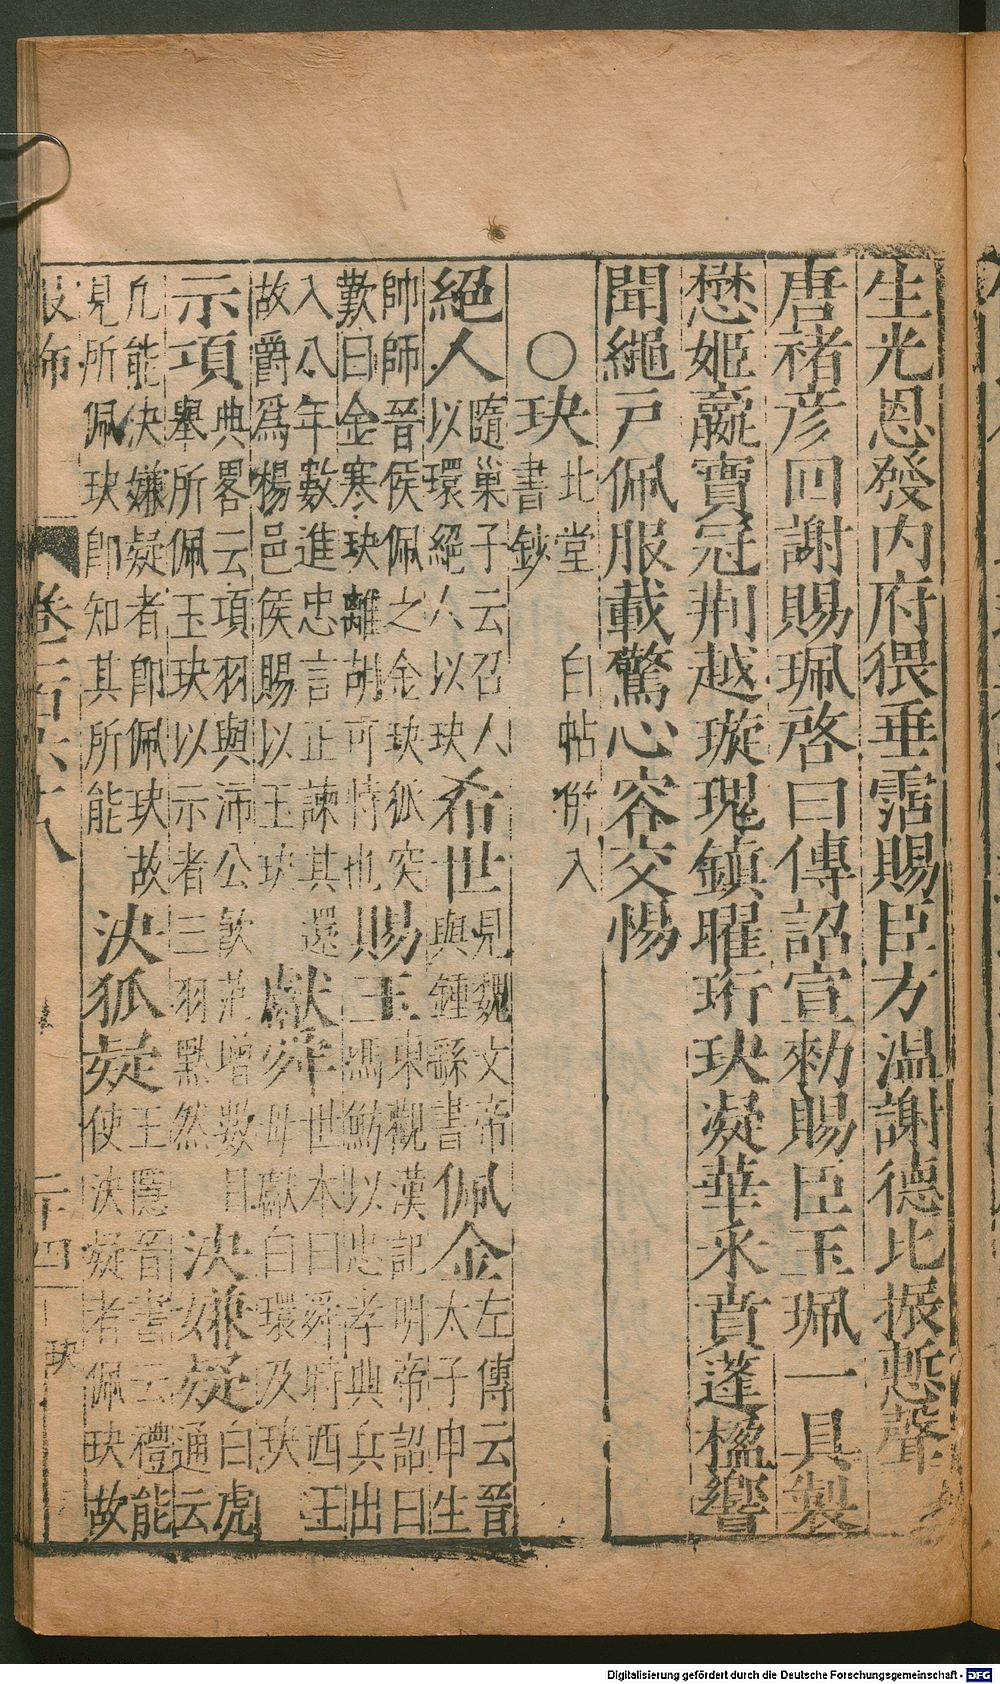 生光恩發内府猥垂霑賜臣方温謝德比振慙聲
唐褚彦回謝賜珮啓曰傳詔宣勑賜臣玉珮一具製
懋姬嬴寶冠荆越璇瑰鎮曜珩玦凝華永賁蓬楹響
聞繩戸佩服載驚心容交惕
○玦 北堂書鈔 白帖併入
絕人 隨巢子云召人以環絕人以玦 希世 見魏文帝與鍾繇書 佩金 左傳云晉太子申生
帥師晉侯佩之金玦狐突歎曰金寒玦離胡可恃也 賜玉 東觀漢記明帝詔曰馮魴以忠孝典兵出
入八年數進忠言正諫其還故爵爲楊邑侯賜以玉玦 獻舜 世本曰舜時西王母獻白環及玦
示項 典畧云項羽與沛公飲范增數目羽舉所佩玉玦以示者三羽黙然 決嫌疑 白虎通云
凢能決嫌疑者卽佩玦故見所佩玦卽知其所能 決狐疑 王隱晉書云禮能使決疑者佩玦故
卷三百六十八 二十四 玦
Digitalisierung gefördert durch die Deutsche Forschungsgemeinschaft - DFG